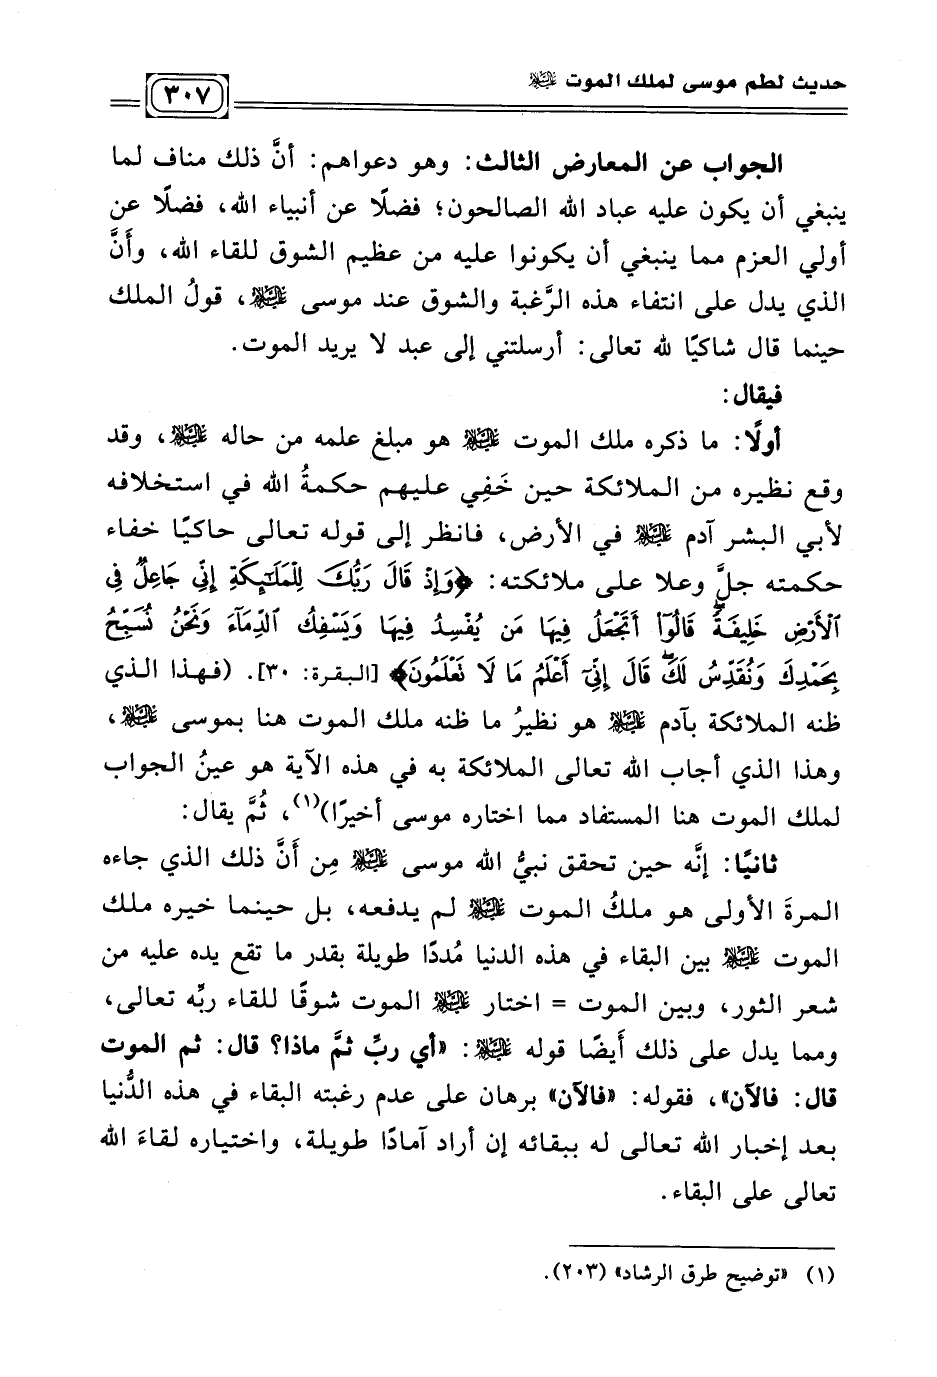 حديث لطم موسى لملك الموت ﷺ
٣٠٧
الجواب عن المعارض الثالث: وهو دعواهم: أنَّ ذلك مناف لما
ينبغي أن يكون عليه عباد الله الصالحون؛ فضلًا عن أنبياء الله، فضلًا عن
أولي العزم مما ينبغي أن يكونوا عليه من عظيم الشوق للقاء الله، وأنَّ
الذي يدل على انتفاء هذه الرَّغبة والشوق عند موسى عليه السلام، قولُ الملك
حينما قال شاكيًا لله تعالى: أرسلتني إلى عبد لا يريد الموت.
فيقال:
أولًا: ما ذكره ملك الموت عليه السلام هو مبلغ علمه من حاله عليه السلام، وقد
وقع نظيره من الملائكة حين خَفِي عليهم حكمةُ الله في استخلافه
لأبي البشر آدم عليه السلام في الأرض، فانظر إلى قوله تعالى حاكيًا خفاء
حكمته جلَّ وعلا على ملائكته: ﴿وَإِذْ قَالَ رَبُّكَ لِلْمَلَٰٓئِكَةِ إِنِّي جَاعِلٌ فِي
ٱلْأَرْضِ خَلِيفَةً ۖ قَالُوٓا۟ أَتَجْعَلُ فِيهَا مَن يُفْسِدُ فِيهَا وَيَسْفِكُ ٱلدِّمَآءَ وَنَحْنُ نُسَبِّحُ
بِحَمْدِكَ وَنُقَدِّسُ لَكَ ۖ قَالَ إِنِّيٓ أَعْلَمُ مَا لَا تَعْلَمُونَ﴾ [البقرة: ٣٠]. (فهذا الذي
ظنه الملائكة بآدم عليه السلام هو نظيرُ ما ظنه ملك الموت هنا بموسى عليه السلام،
وهذا الذي أجاب الله تعالى الملائكة به في هذه الآية هو عينُ الجواب
لملك الموت هنا المستفاد مما اختاره موسى أخيرًا)(١)، ثُمَّ يقال:
ثانيًا: إنَّه حين تحقق نبيُّ الله موسى عليه السلام مِن أَنَّ ذلك الذي جاءه
المرةَ الأولى هو ملكُ الموت عليه السلام لم يدفعه، بل حينما خيره ملك
الموت عليه السلام بين البقاء في هذه الدنيا مُددًا طويلة بقدر ما تقع يده عليه من
شعر الثور، وبين الموت = اختار عليه السلام الموت شوقًا للقاء ربِّه تعالى،
ومما يدل على ذلك أَيضًا قوله عليه السلام: «أي ربِّ ثمَّ ماذا؟ قال: ثم الموت
قال: فالآن»، فقوله: «فالآن» برهان على عدم رغبته البقاء في هذه الدُّنيا
بعد إخبار الله تعالى له ببقائه إن أراد آمادًا طويلة، واختياره لقاءَ الله
تعالى على البقاء.
(١) «توضيح طرق الرشاد» (٢٠٣).